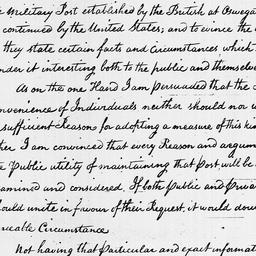 Military Post established by the British at Oswega
continued by the United States; and to evince the
they state certain facts and Circumstances which
der it interesting both to the public and themselve
As on the one Hand I am persuaded that the
nvenience of Individuals neither should nor w
sufficient Reasons for adopting a measure of this kin
her I am convinced that every Reason and argum
Public utility of maintaining that Post, will be
amined and considered. If both Public and Priva
ould unite in favour of their Request, it would dou
eable Circumstance
Not having that Particular and exact informat